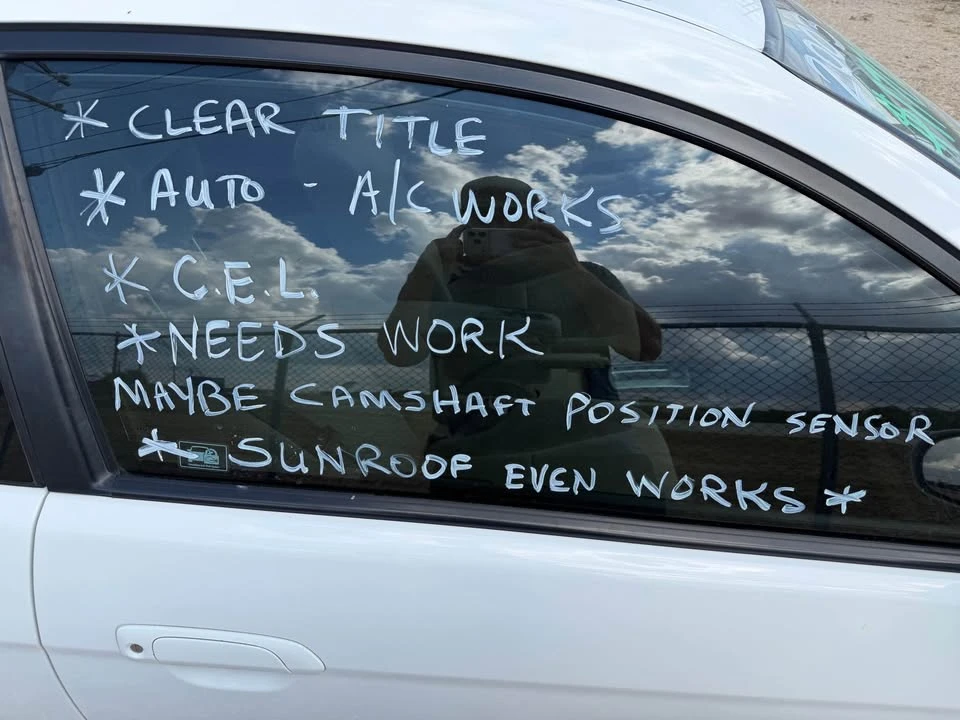 * CLEAR TITLE
* AUTO - A/C WORKS
* C.E.L.
* NEEDS WORK
MAYBE CAMSHAFT POSITION SENSOR
* SUNROOF EVEN WORKS *